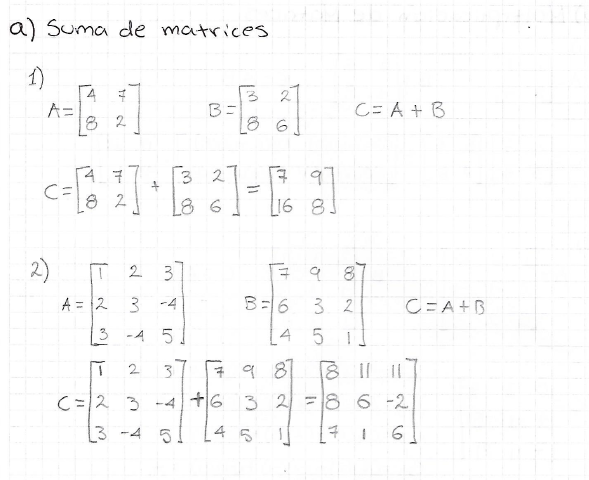 a) Suma de matrices
1)
A = [4 7
8 2] B = [3 2
8 6] C = A + B
C = [4 7
8 2] + [3 2
8 6] = [7 9
16 8]
2)
A = [1 2 3
2 3 -4
3 -4 5] B = [7 9 8
6 3 2
4 5 1] C = A + B
C = [1 2 3
2 3 -4
3 -4 5] + [7 9 8
6 3 2
4 5 1] = [8 11 11
8 6 -2
7 1 6]